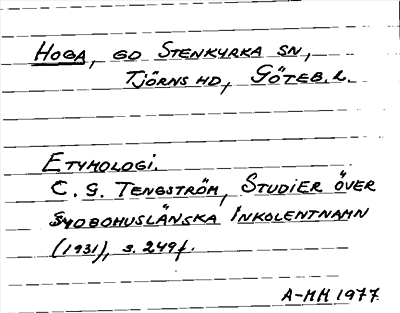 HOGA, GD STENKYRKA SN,
TJÖRNS HD, GÖTEB. L.
ETYMOLOGI.
C. G. TENGSTRÖM, STUDIER ÖVER
SYDBOHUSLÄNSKA INKOLENTNAMN
(1931), s. 249f.
A-MH 1977